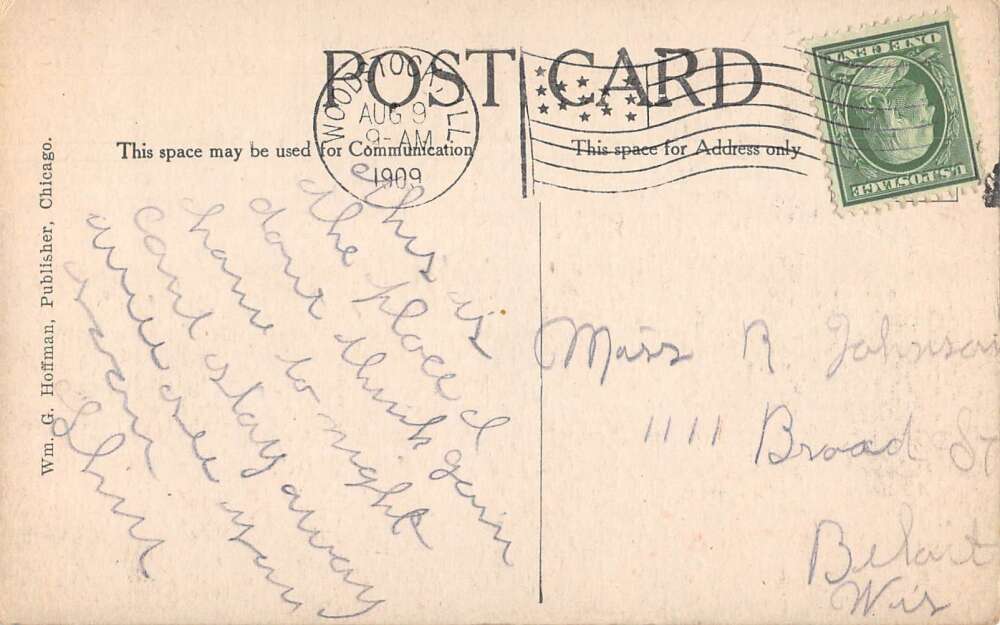 POST CARD
WOODSTOCK, ILL.
AUG 9
9-AM
1909
ONE CENT
U.S. POSTAGE
This space may be used for Communication
This space for Address only
Wm. G. Hoffman, Publisher, Chicago.
This is
the place I
dont think
home to night
cant stay away
soon
Miss R Johnson
1111 Broad St
Beloit
Wis